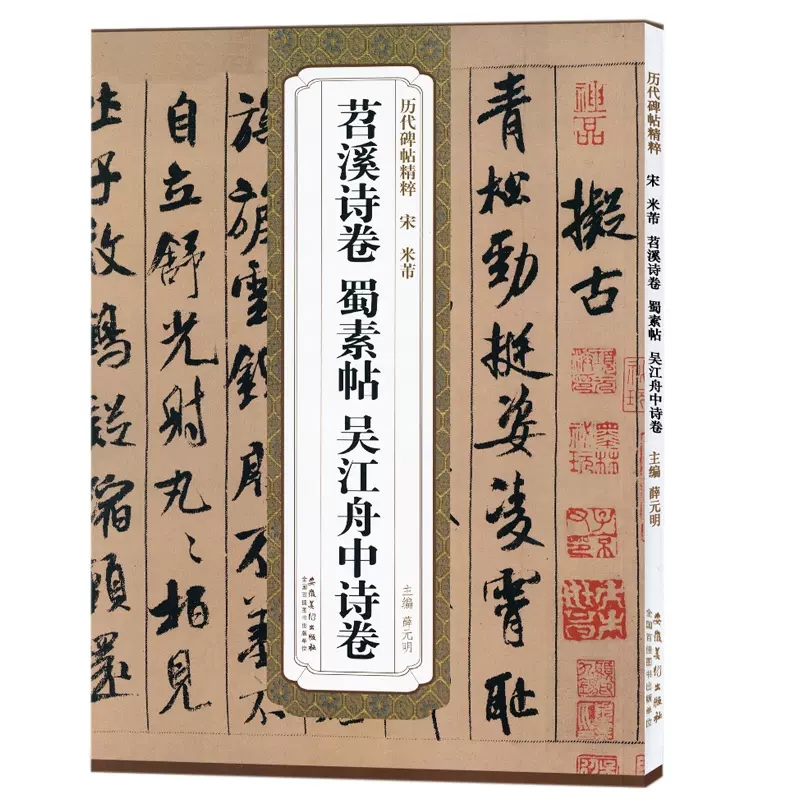 擬古
青松勁挺姿凌霄恥
历代碑帖精粹 宋 米芾
苕溪诗卷 蜀素帖 吴江舟中诗卷
主编 薛元明
安徽美术出版社
全国百佳图书出版单位
旖旎雲錦殷不羞不
自立舒光射丸〻柏見
吐子效鶴疑縮頸還
历代碑帖精粹 宋 米芾 苕溪诗卷 蜀素帖 吴江舟中诗卷 主编 薛元明
安徽美术出版社
全国百佳图书出版单位